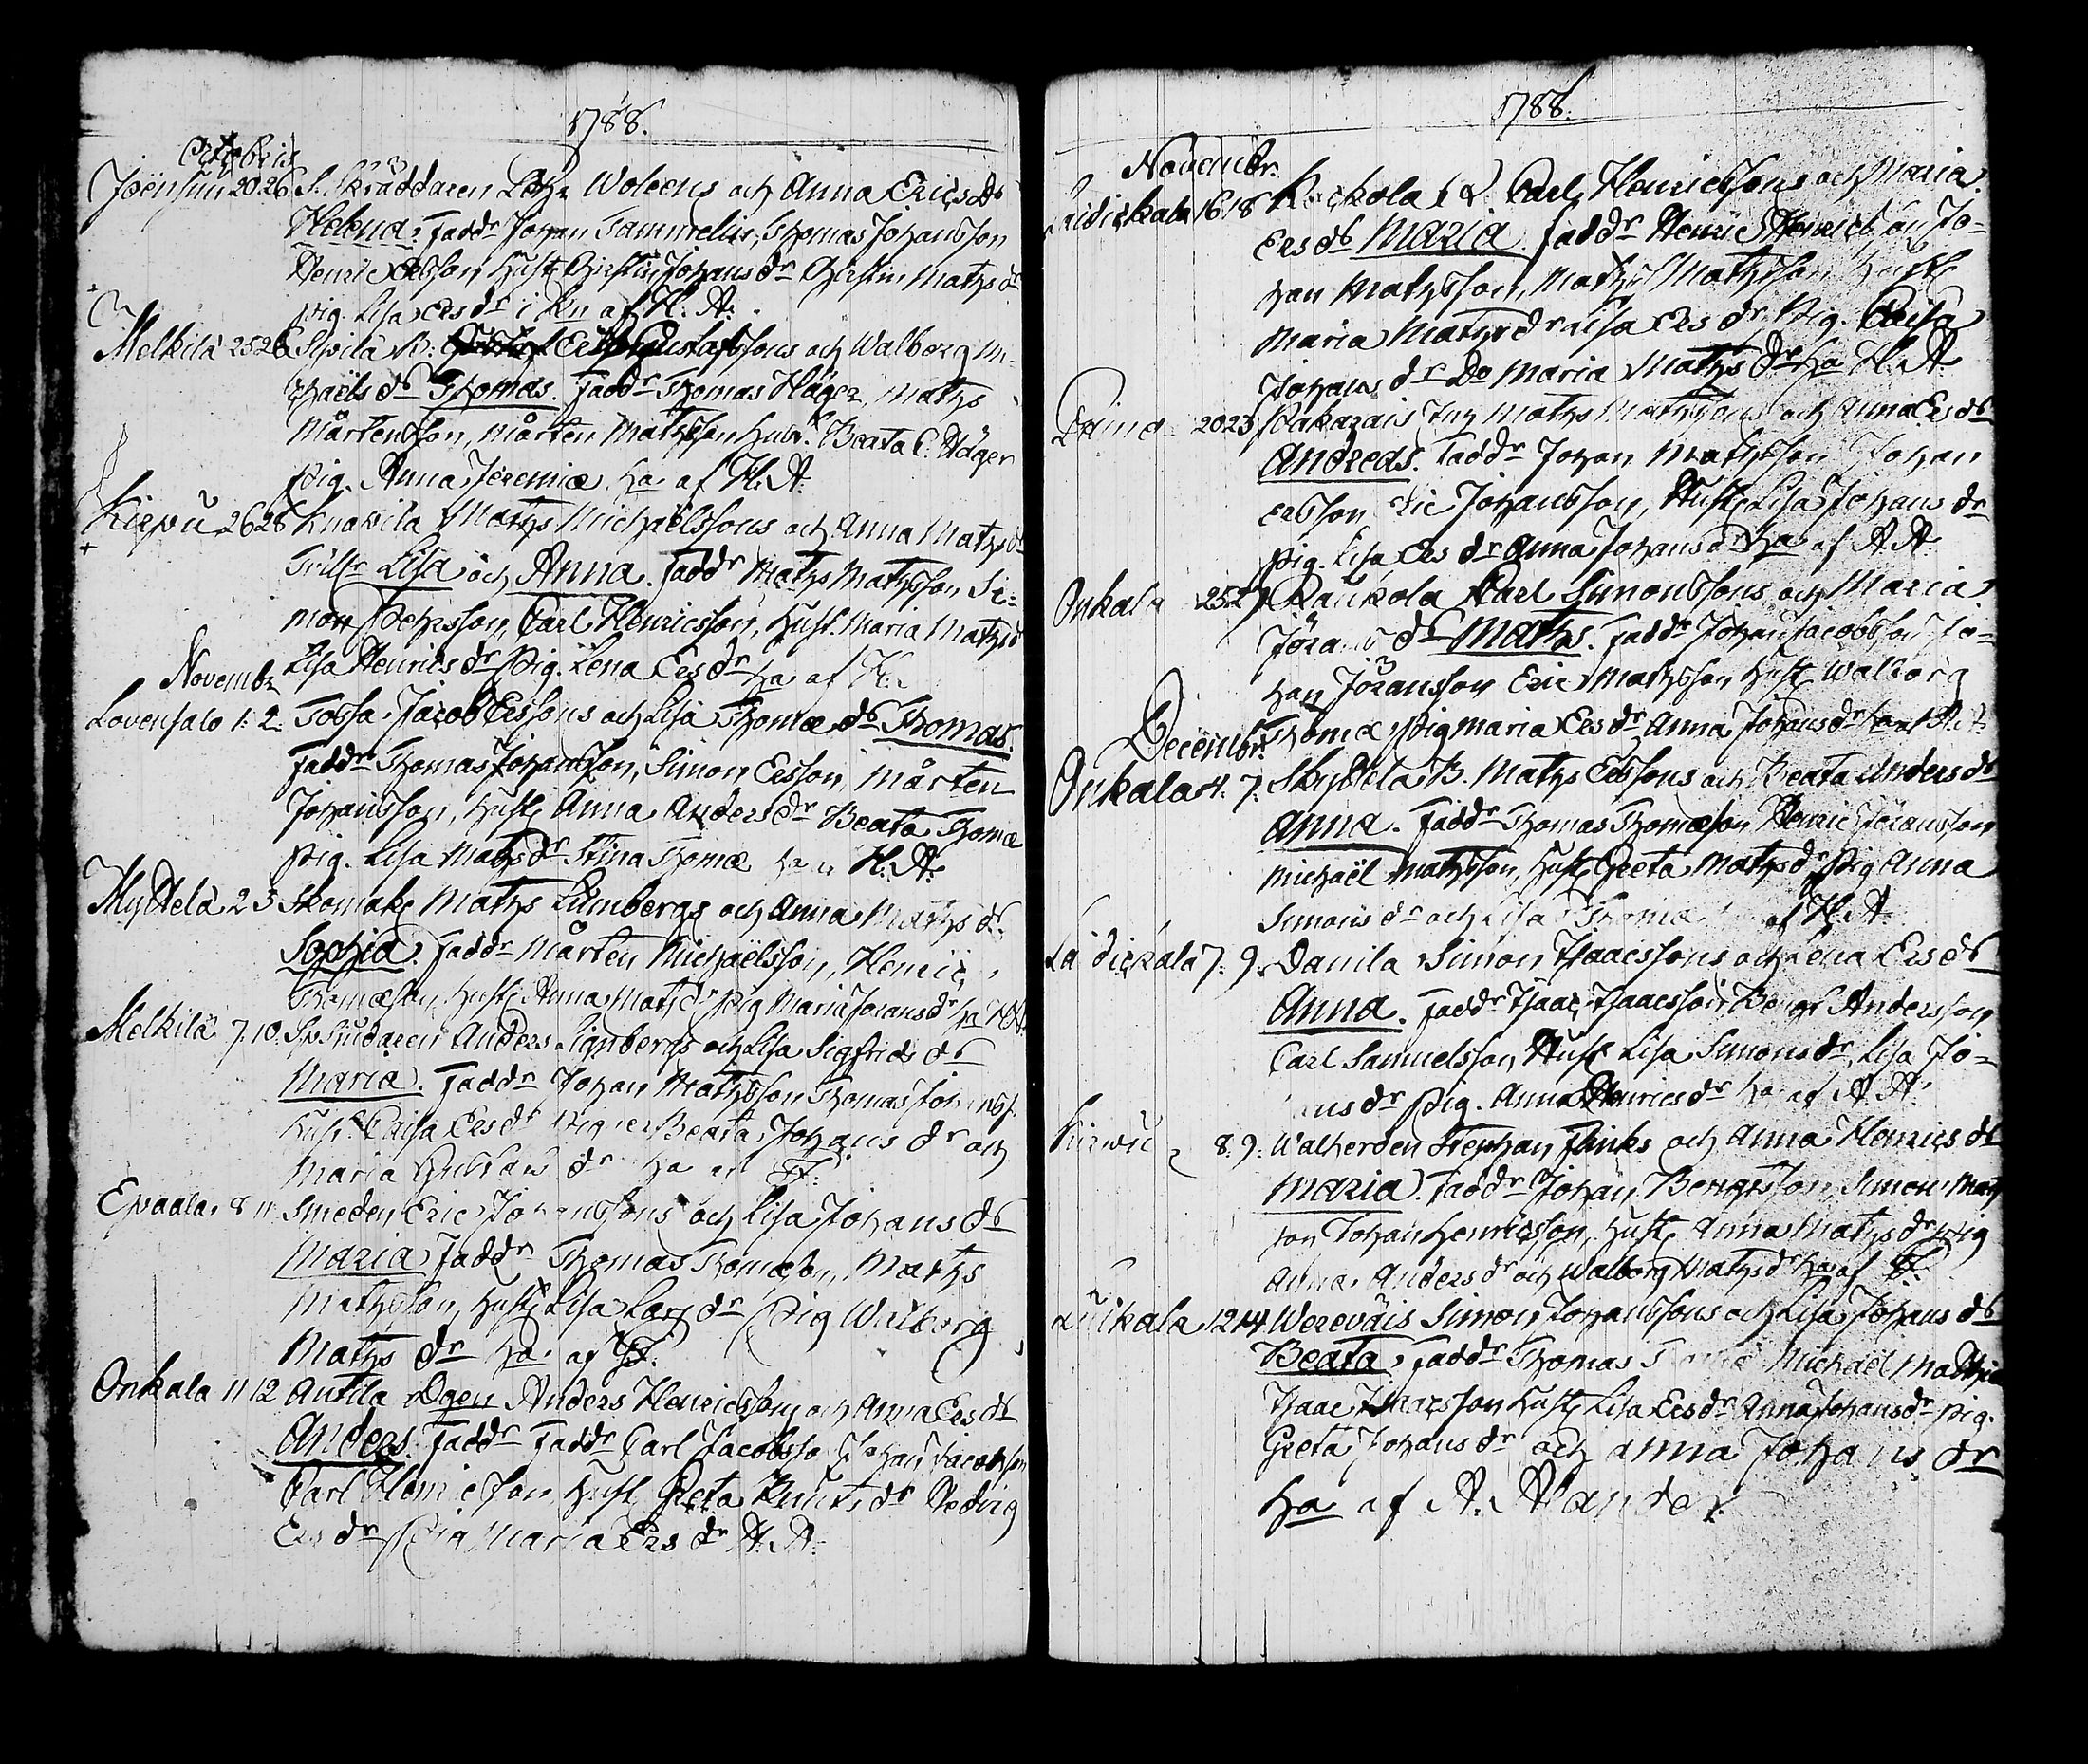 1788.
Octobris
Joensuu 20 26 S. Skräddaren Joh. Woleens och Anna Erics db
Helena. Faddr Johan Sammelin, Thomas Johansson
Henric Ersson, Hust. Christin Johans dr Christin Maths dr
Pig. Lisa Ers dr i kn af H. A.
Melkilä 25 26 Sipilä B: Erik Gustafssons och Walborg Mi-
chaëls db Thomas. Faddr Thomas Häger, Maths
Mårtensson, Mårten Mathsson Hust. Beata C. Häger
Pig. Anna Jeremiæ. ha af H. A.
Kirpu 26 28 Knapila Maths Michaëlssons och Anna Maths db
Tvill. Lisa och Anna. Faddr Maths Mathsson Si-
mon Pehrsson, Carl Henricsson, Hust. Maria Maths d
Lisa Henrics dr Pig. Lena Ers dr ha af
Novembr
Lovensalo 1. 2. Tossa Jacob Erssons och Lisa Thomæ db Thomas.
Faddr Thomas Johansson, Simon Ersson, Mårten
Johansson, Hust. Anna Anders dr Beata Thomæ
Pig. Lisa Maths dr Stina Thomæ ha H. A.
Myttelä 2 3 Skomak. Maths Limbergs och Anna Maths db
Sophia. Faddr Mårten Michaëlsson, Henric
Thomæson Hust. Anna Maths dr Pig Maria Johans dr ha
Melkilä 7. 10. Anders Lignbergs och Lisa Sigfrids db
Maria. Faddr Johan Mathsson Thomas
Hust. Caisa Ers dr Pigor Beata Johans dr och
Maria Gustavs dr ha af
Epaala 8 11 Smeden Eric Johanssons och Lisa Johans db
Maria Faddr Thomas Thomæson, Maths
Mathsson, Hust. Lisa Lars dr Pig Walborg
Maths dr ha af
Onkala 11 12 Antila Ägen Anders Henricssons och Anna Ers db
Anders. Faddr Faddr Carl Jacobsson Johan Jacobsson
Carl Henricsson, Hust. Greta Knuts dr Hedvig
Ers dr Pig Maria Ers dr A. A.
1788.
Novembr.
Laidickala 16 18 Kockola Carl Henricssons och Maria
Ers db Maria Faddr Henric Henricsson Jo-
han Mathsson, Maths Mathsson Hust.
Maria Maths dr Lisa Ers dr Pig. Caisa
Johans dr Do Maria Maths dr ha H. A.
20 23 Pakarais Maths Mathssons och Anna Ers db
Andreas. Faddr Johan Mathsson Johan
Ersson Eric Johansson, Hust. Lisa Johans dr
Pig. Lisa Ers dr Anna Johans dr ha af A. A.
Onkala 25 27 Raukola Karl Simonssons och Maria
Jörans db Maths. Faddr Johan Jacobsson Jo-
han Jöransson Eric Mathsson Hust. Walborg
Thomæ Pig Maria Ers dr Anna Johans dr ha af A. A.
Decembr.
Onkala 4. 7. Skyttela B. Maths Erssons och Beata Anders db
Anna. Faddr Thomas Thomæson Henric Jöransson
Michaël Mathsson, Hust. Greta Maths dr Pig Anna
Simons dr och Lisa Thomæ af H. A.
Laidickala 7. 9. Danila Simon Isaacssons och Lena Ers db
Anna. Faddr Isaac Isaacsson Bengt Andersson
Carl Samuelsson, Hust Lisa Simons dr, Lisa Jo-
hans dr Pig. Anna Henrics dr ha af A. A.
Kirpu 8. 9. Walherden Stephan Flinks och Anna Henrics db
Maria. Faddr Johan Bengtsson, Simon Maths
son Johan Henricsson, Hust. Anna Maths dr Pig
Anna Anders dr och Walborg Maths dr ha af
Laikala 12 14 Werevais Simon Johanssons och Lisa Johans db
Beata. Faddr Thomas Michaël
Isaac Isaacsson Hust. Lisa Ers dr Anna Johans dr Pig.
Greta Johans dr och Anna Johans dr
Ha af A. Alander.